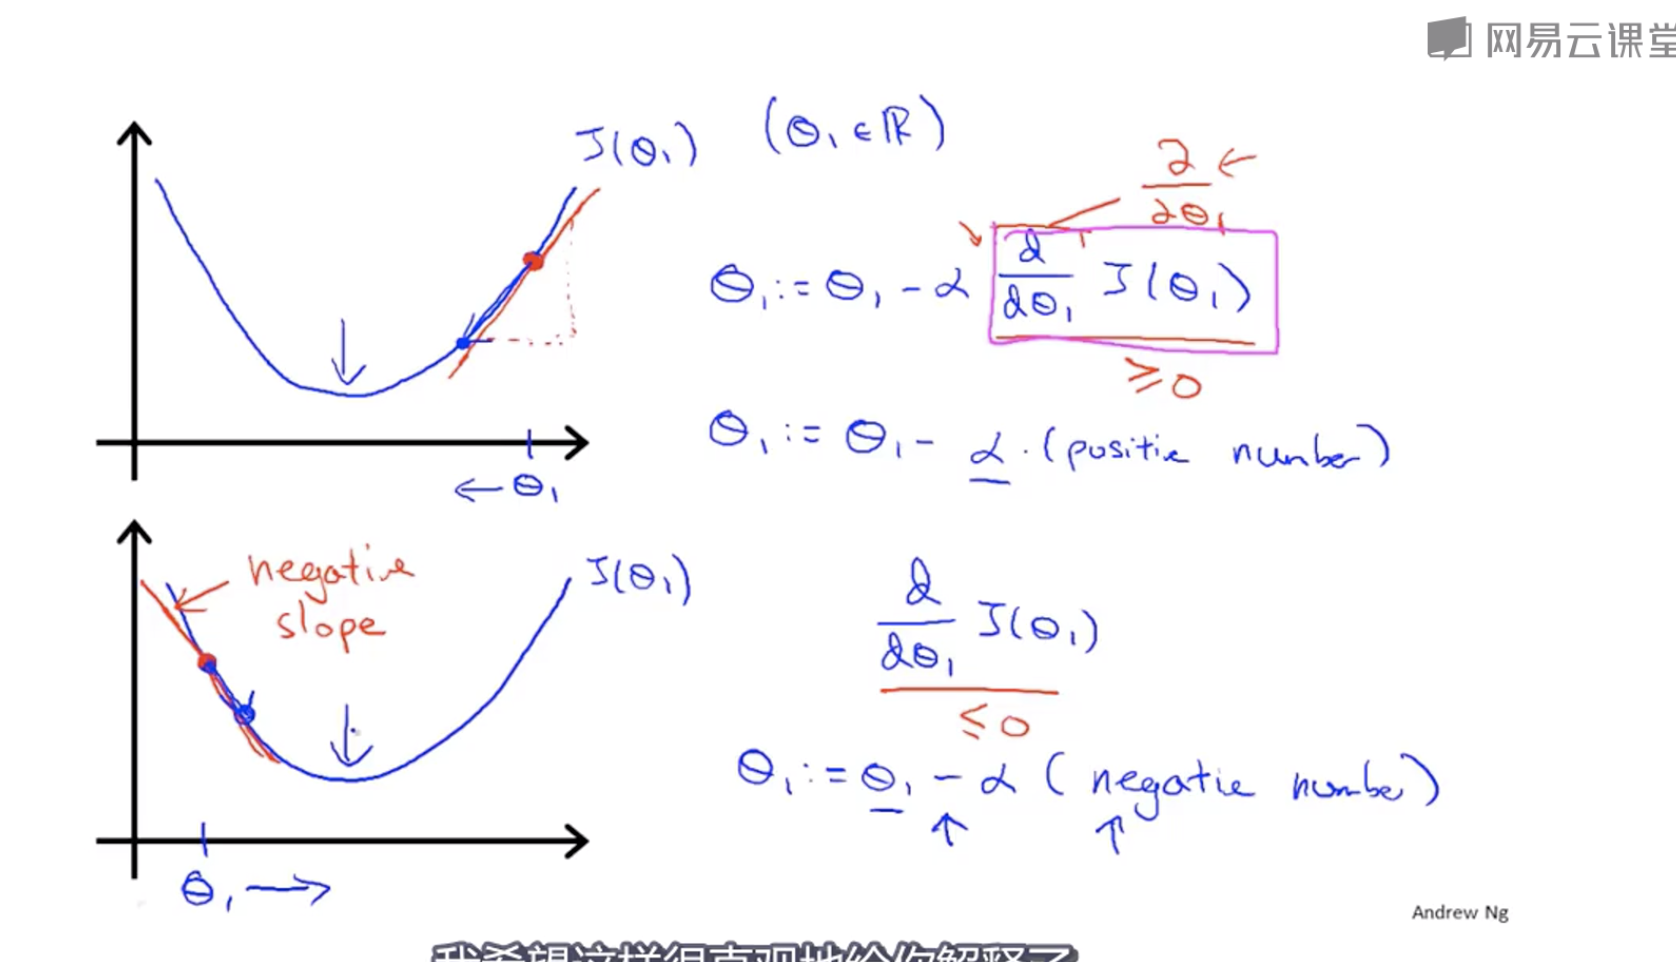 网易云课堂
J(θ₁) (θ₁ ∈ ℝ)
∂/∂θ₁
θ₁ := θ₁ - α d/dθ₁ J(θ₁)
≥ 0
θ₁ := θ₁ - α · (positive number)
θ₁
negative
slope
J(θ₁)
d/dθ₁ J(θ₁)
≤ 0
θ₁ := θ₁ - α (negative number)
θ₁
Andrew Ng
我希望这样很直观地给你解释了